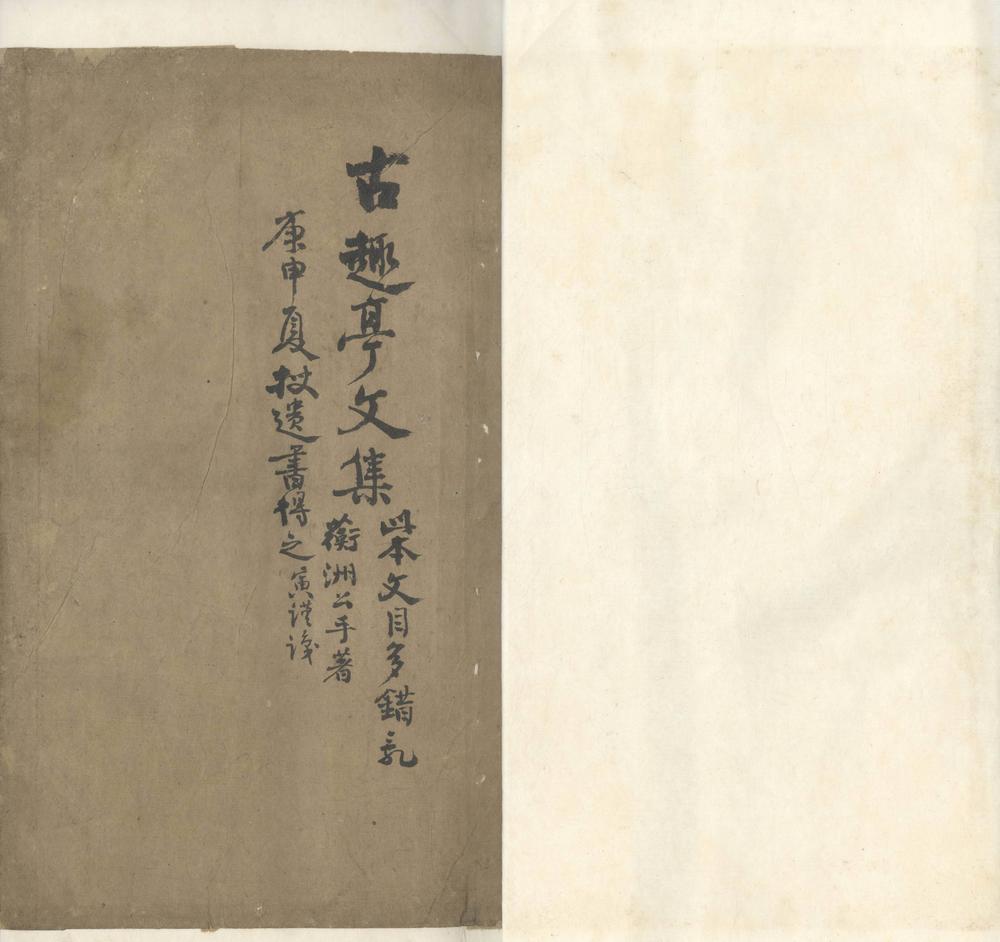 古趣亭文集
此本文目多錯亂
衡洲公手著
庚申夏遺書得之寅謹識